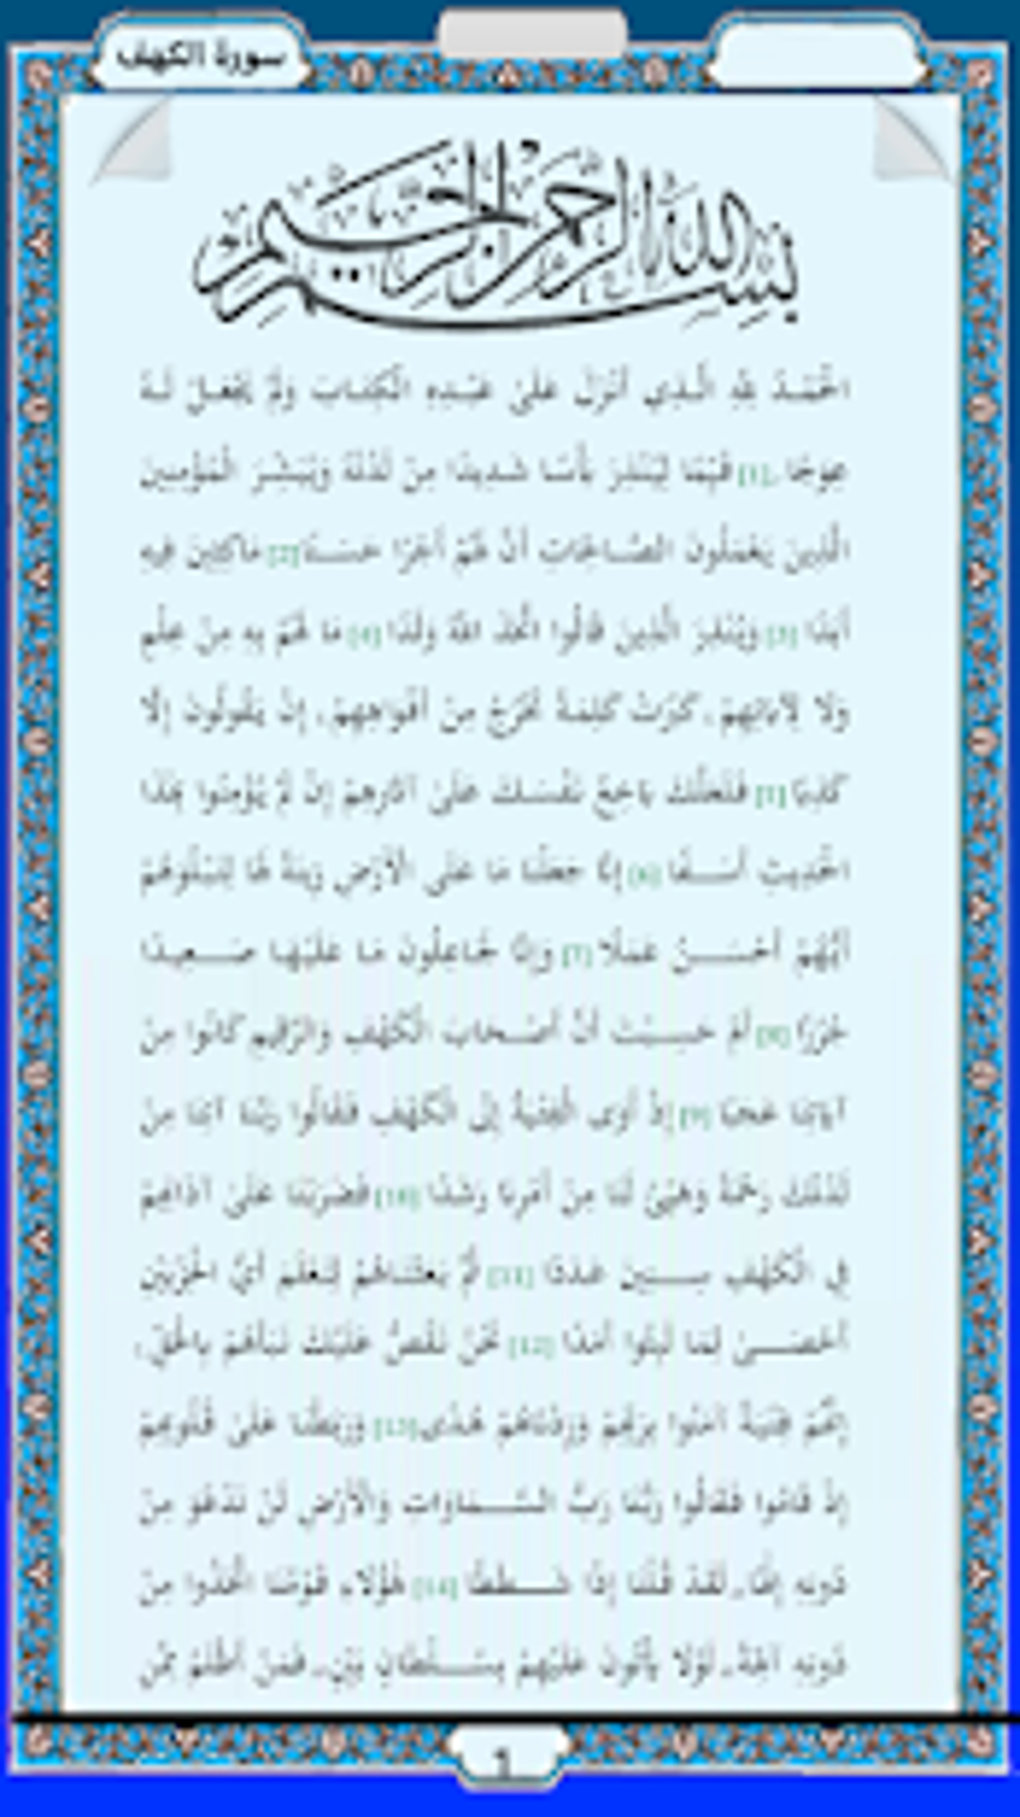 سورة الكهف
بسم الله الرحمن الرحيم
الْحَمْدُ لِلَّهِ الَّذِي أَنْزَلَ عَلَىٰ عَبْدِهِ الْكِتَابَ وَلَمْ يَجْعَلْ لَهُ
عِوَجًا ۜ [1] قَيِّمًا لِيُنْذِرَ بَأْسًا شَدِيدًا مِنْ لَدُنْهُ وَيُبَشِّرَ الْمُؤْمِنِينَ
الَّذِينَ يَعْمَلُونَ الصَّالِحَاتِ أَنَّ لَهُمْ أَجْرًا حَسَنًا [2] مَاكِثِينَ فِيهِ
أَبَدًا [3] وَيُنْذِرَ الَّذِينَ قَالُوا اتَّخَذَ اللَّهُ وَلَدًا [4] مَا لَهُمْ بِهِ مِنْ عِلْمٍ
وَلَا لِآبَائِهِمْ ۚ كَبُرَتْ كَلِمَةً تَخْرُجُ مِنْ أَفْوَاهِهِمْ ۚ إِنْ يَقُولُونَ إِلَّا
كَذِبًا [5] فَلَعَلَّكَ بَاخِعٌ نَفْسَكَ عَلَىٰ آثَارِهِمْ إِنْ لَمْ يُؤْمِنُوا بِهَٰذَا
الْحَدِيثِ أَسَفًا [6] إِنَّا جَعَلْنَا مَا عَلَى الْأَرْضِ زِينَةً لَهَا لِنَبْلُوَهُمْ
أَيُّهُمْ أَحْسَنُ عَمَلًا [7] وَإِنَّا لَجَاعِلُونَ مَا عَلَيْهَا صَعِيدًا
جُرُزًا [8] أَمْ حَسِبْتَ أَنَّ أَصْحَابَ الْكَهْفِ وَالرَّقِيمِ كَانُوا مِنْ
آيَاتِنَا عَجَبًا [9] إِذْ أَوَى الْفِتْيَةُ إِلَى الْكَهْفِ فَقَالُوا رَبَّنَا آتِنَا مِنْ
لَدُنْكَ رَحْمَةً وَهَيِّئْ لَنَا مِنْ أَمْرِنَا رَشَدًا [10] فَضَرَبْنَا عَلَىٰ آذَانِهِمْ
فِي الْكَهْفِ سِنِينَ عَدَدًا [11] ثُمَّ بَعَثْنَاهُمْ لِنَعْلَمَ أَيُّ الْحِزْبَيْنِ
أَحْصَىٰ لِمَا لَبِثُوا أَمَدًا [12] نَحْنُ نَقُصُّ عَلَيْكَ نَبَأَهُمْ بِالْحَقِّ ۚ
إِنَّهُمْ فِتْيَةٌ آمَنُوا بِرَبِّهِمْ وَزِدْنَاهُمْ هُدًى [13] وَرَبَطْنَا عَلَىٰ قُلُوبِهِمْ
إِذْ قَامُوا فَقَالُوا رَبُّنَا رَبُّ السَّمَاوَاتِ وَالْأَرْضِ لَنْ نَدْعُوَ مِنْ
دُونِهِ إِلَٰهًا ۖ لَقَدْ قُلْنَا إِذًا شَطَطًا [14] هَٰؤُلَاءِ قَوْمُنَا اتَّخَذُوا مِنْ
دُونِهِ آلِهَةً ۖ لَوْلَا يَأْتُونَ عَلَيْهِمْ بِسُلْطَانٍ بَيِّنٍ ۖ فَمَنْ أَظْلَمُ مِمَّنِ
1